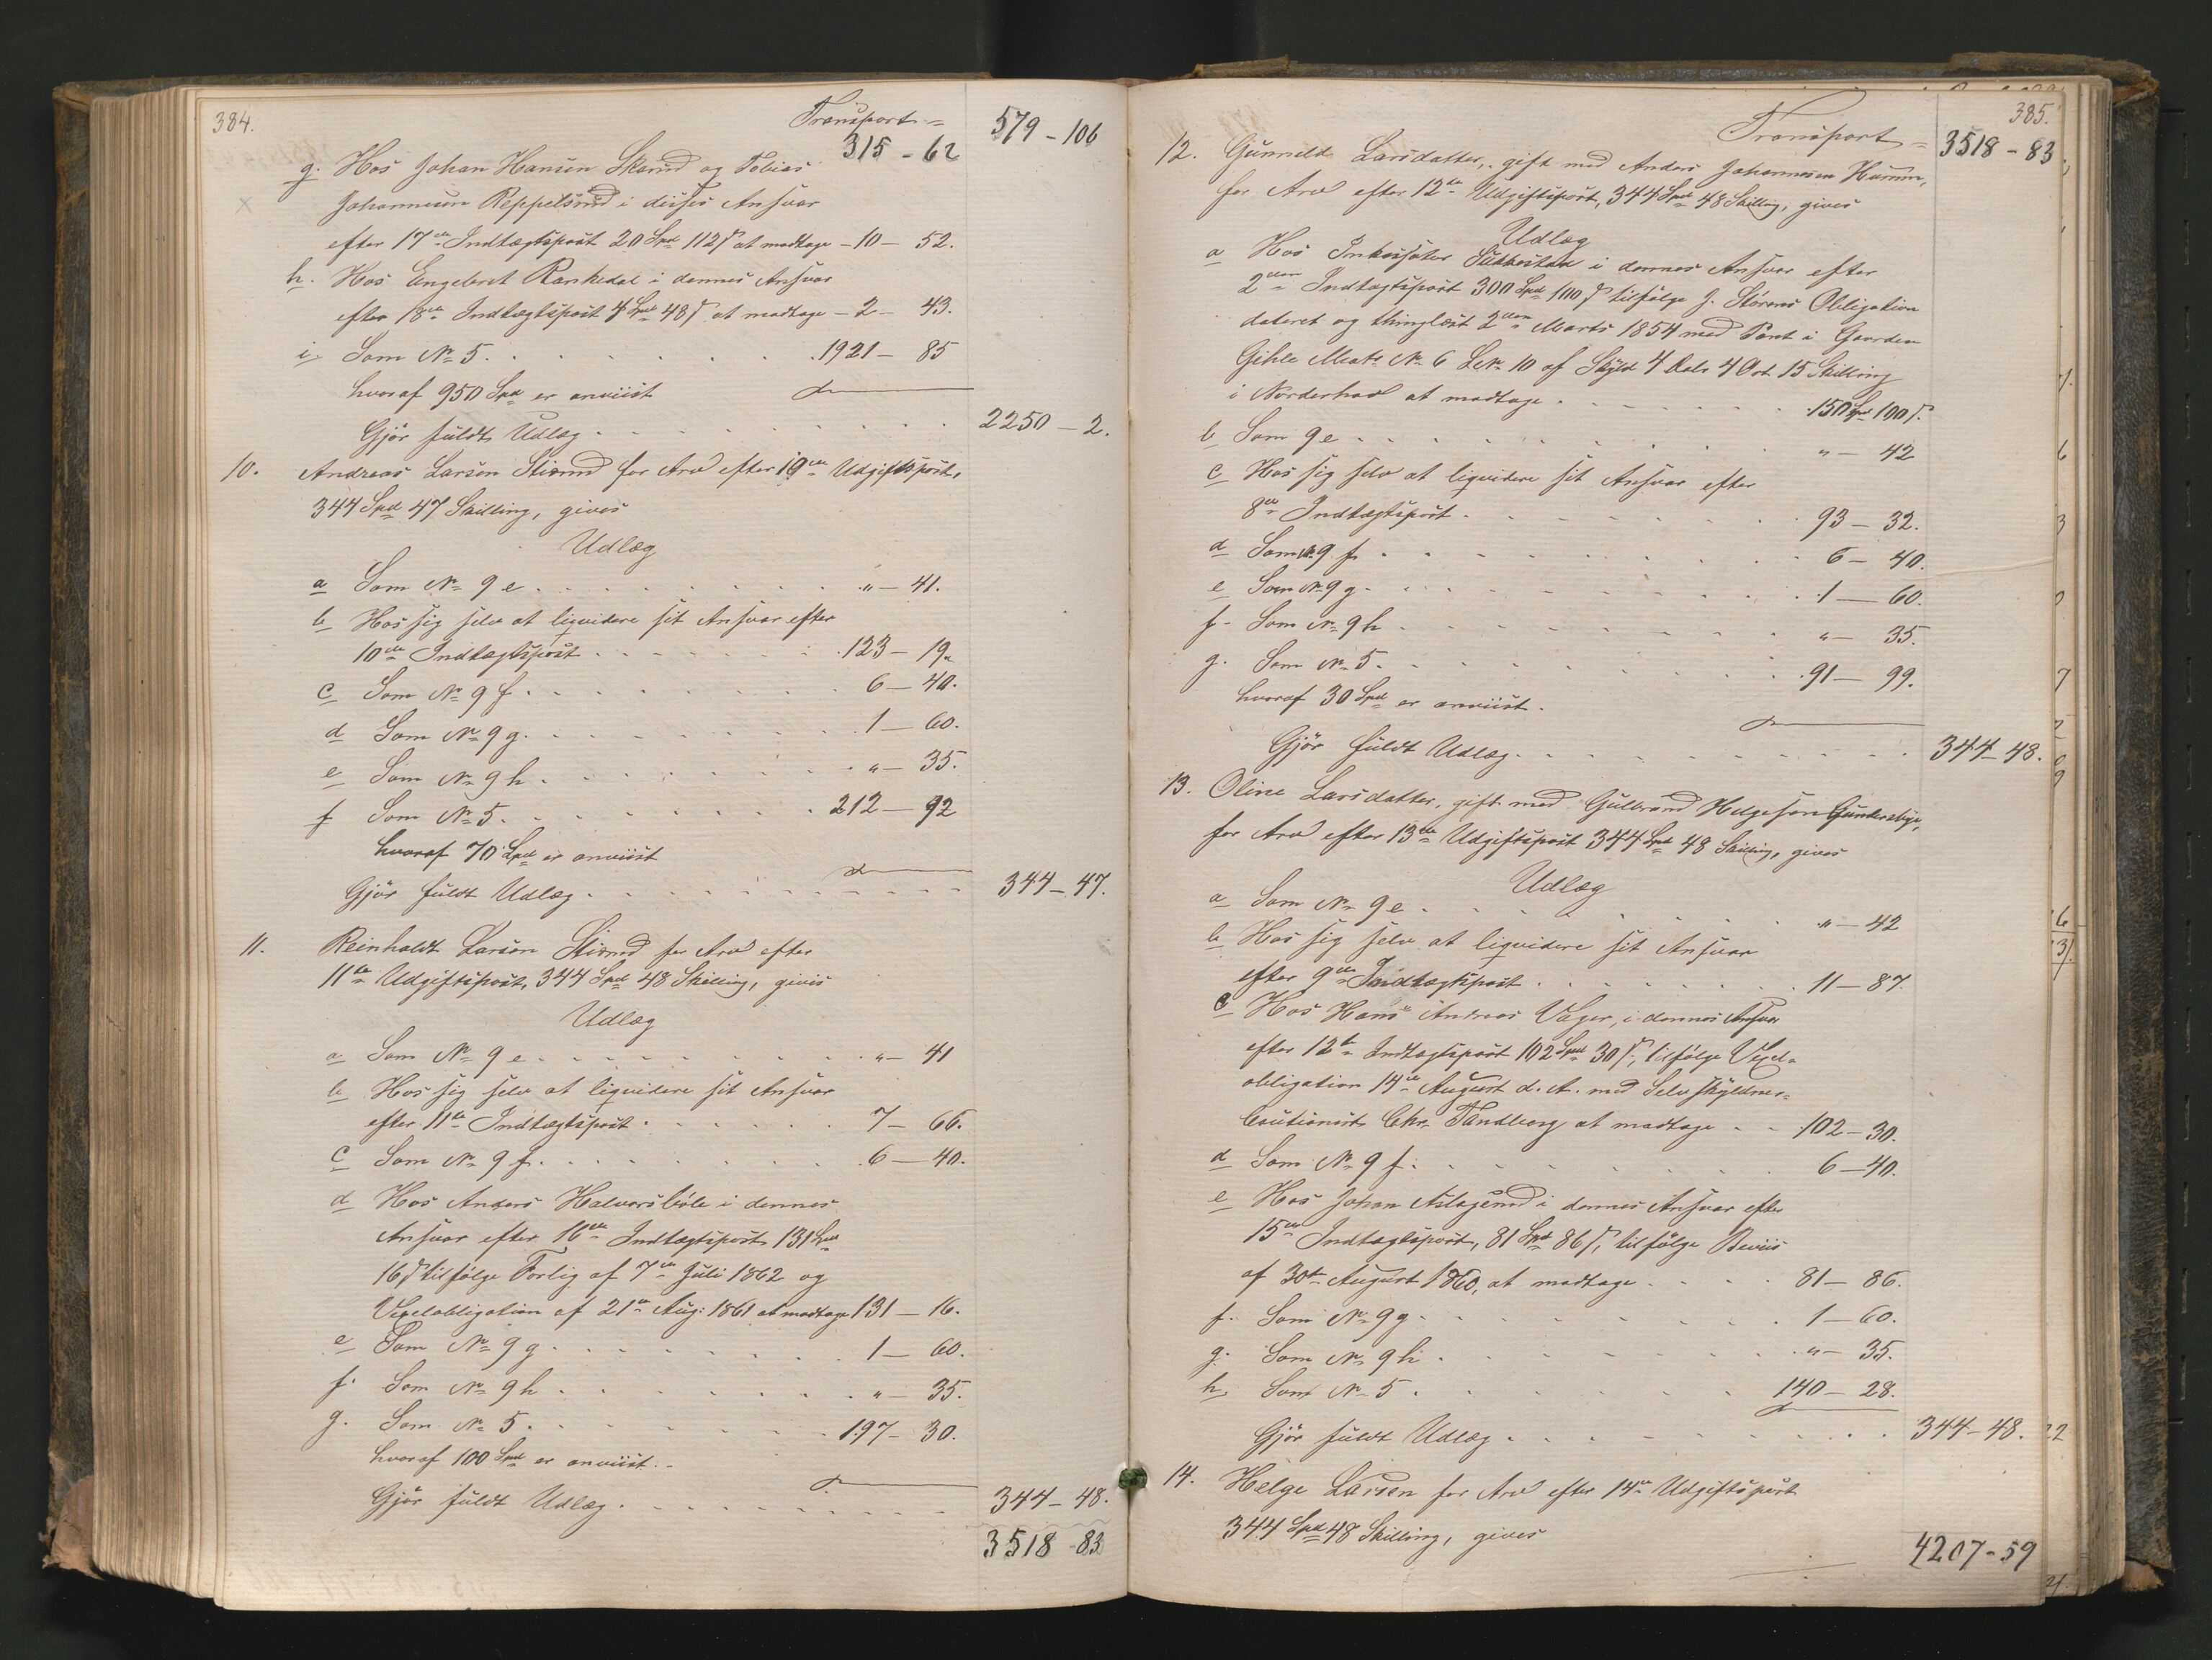 384.
Transport =
315 - 62
579 - 106
g. Hos Johan Hansen Skarud og Tobias
Johannesen Reppelsrud i disses Ansvar
efter 17de Indtægtspost 20 Spd 112 ß at modtage - 10 - 52.
h. Hos Engebret Rankedal i dennes Ansvar
efter 18de Indtægtspost 4 Spd 48 ß at modtage - 2 - 43.
i. Som No 5. 1921 - 85
hvoraf 950 Spd er anviist
Gjør fuldt Udlæg 2250 - 2.
10. Andreas Larsen for Arv efter 10de Udgiftspost,
344 Spd 47 Skilling, gives
Udlæg
a Som No 9 e " - 41.
b Hos sig selv at liqvidere sit Ansvar efter
10de Indtægtspost 123 - 19.
c Som No 9 f. 6 - 40.
d Som No 9 g. 1 - 60.
e Som No 9 h. " - 35.
f Som No 5. 212 - 92
hvoraf 70 Spd er anviist
Gjør fuldt Udlæg 344 - 47.
11. Reinholdt Larsen for Arv efter
11te Udgiftspost, 344 Spd 48 Skilling, gives
Udlæg
a Som No 9 e " - 41
b Hos sig selv at liqvidere sit Ansvar
efter 11te Indtægtspost 7 - 66.
c Som No 9 f. 6 - 40.
d Hos Anders Halvorsbøle i dennes
Ansvar efter 16de Indtægtspost 131 Spd
16 ß tilfølge Forlig af 7de Juli 1862 og
Vexelobligation af 21de Aug: 1861 at modtage 131 - 16.
e Som No 9 g. 1 - 60.
f. Som No 9 h " - 35.
g. Som No 5. 197 - 30.
hvoraf 100 Spd er anviist.
Gjør fuldt Udlæg. 344 - 48.
3518 - 83
385.
Transport = 3518 - 83
12. Gunnild Larsdatter, gift med Anders Johannesen
for Arv efter 12te Udgiftspost, 344 Spd 48 Skilling, gives
Udlæg
a Hos i dennes Ansvar efter
2den Indtægtspost 300 Spd 100 ß tilfølge J. Störens Obligation
dateret og thinglæst 2den Marts 1854 med Pant i Gaarden
Gihle Matr No 6 L No 10 af Skyld 4 Dalr 4 Ort 15 Skilling
i Norderhov at modtage 150 Spd 100 ß.
b Som 9 e " - 42
c Hos sig selv at liqvidere sit Ansvar efter
8de Indtægtspost 93 - 32.
d Som No 9 f. 6 - 40.
e Som No 9 g. 1 - 60.
f. Som No 9 h " - 35.
g. Som No 5. 91 - 99.
hvoraf 30 Spd er anviist.
Gjør fuldt Udlæg. 344 - 48.
13. Oline Larsdatter, gift med Gulbrand Helgesen Gundersby,
for Arv efter 13de Udgiftspost 344 Spd 48 Skilling, gives
Udlæg
a Som No 9 e " - 42
b Hos sig selv at liqvidere sit Ansvar
efter 9de Indtægtspost 11 - 87.
c Hos Hans Andreas Vager, i dennes Ansvar
efter 12te Indtægtspost 102 Spd 30 ß, tilfølge Vexel=
obligation 14de August d. A. med Selvskyldner=
Cautionist Chr. Tandberg at modtage 102 - 30.
d Som No 9 f. 6 - 40.
e Hos Johan Aslagsrud i dennes Ansvar efter
15de Indtægtspost, 81 Spd 86 ß, tilfølge Beviis
af 30te August 1860, at modtage 81 - 86.
f. Som No 9 g. 1 - 60.
g. Som No 9 h. " - 35.
h. Som No 5. 140 - 28.
Gjør fuldt Udlæg 344 - 48.
14. Helge Larsen for Arv efter 14de Udgiftspost
344 Spd 48 Skilling, gives
4207 - 59